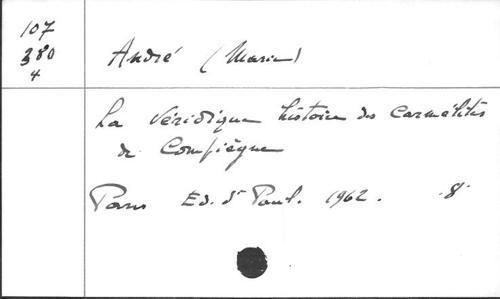 107
380
4
André (Marie)
La véridique histoire des carmélites
de Compiègne
Paris Ed. St Paul. 1962. 8°